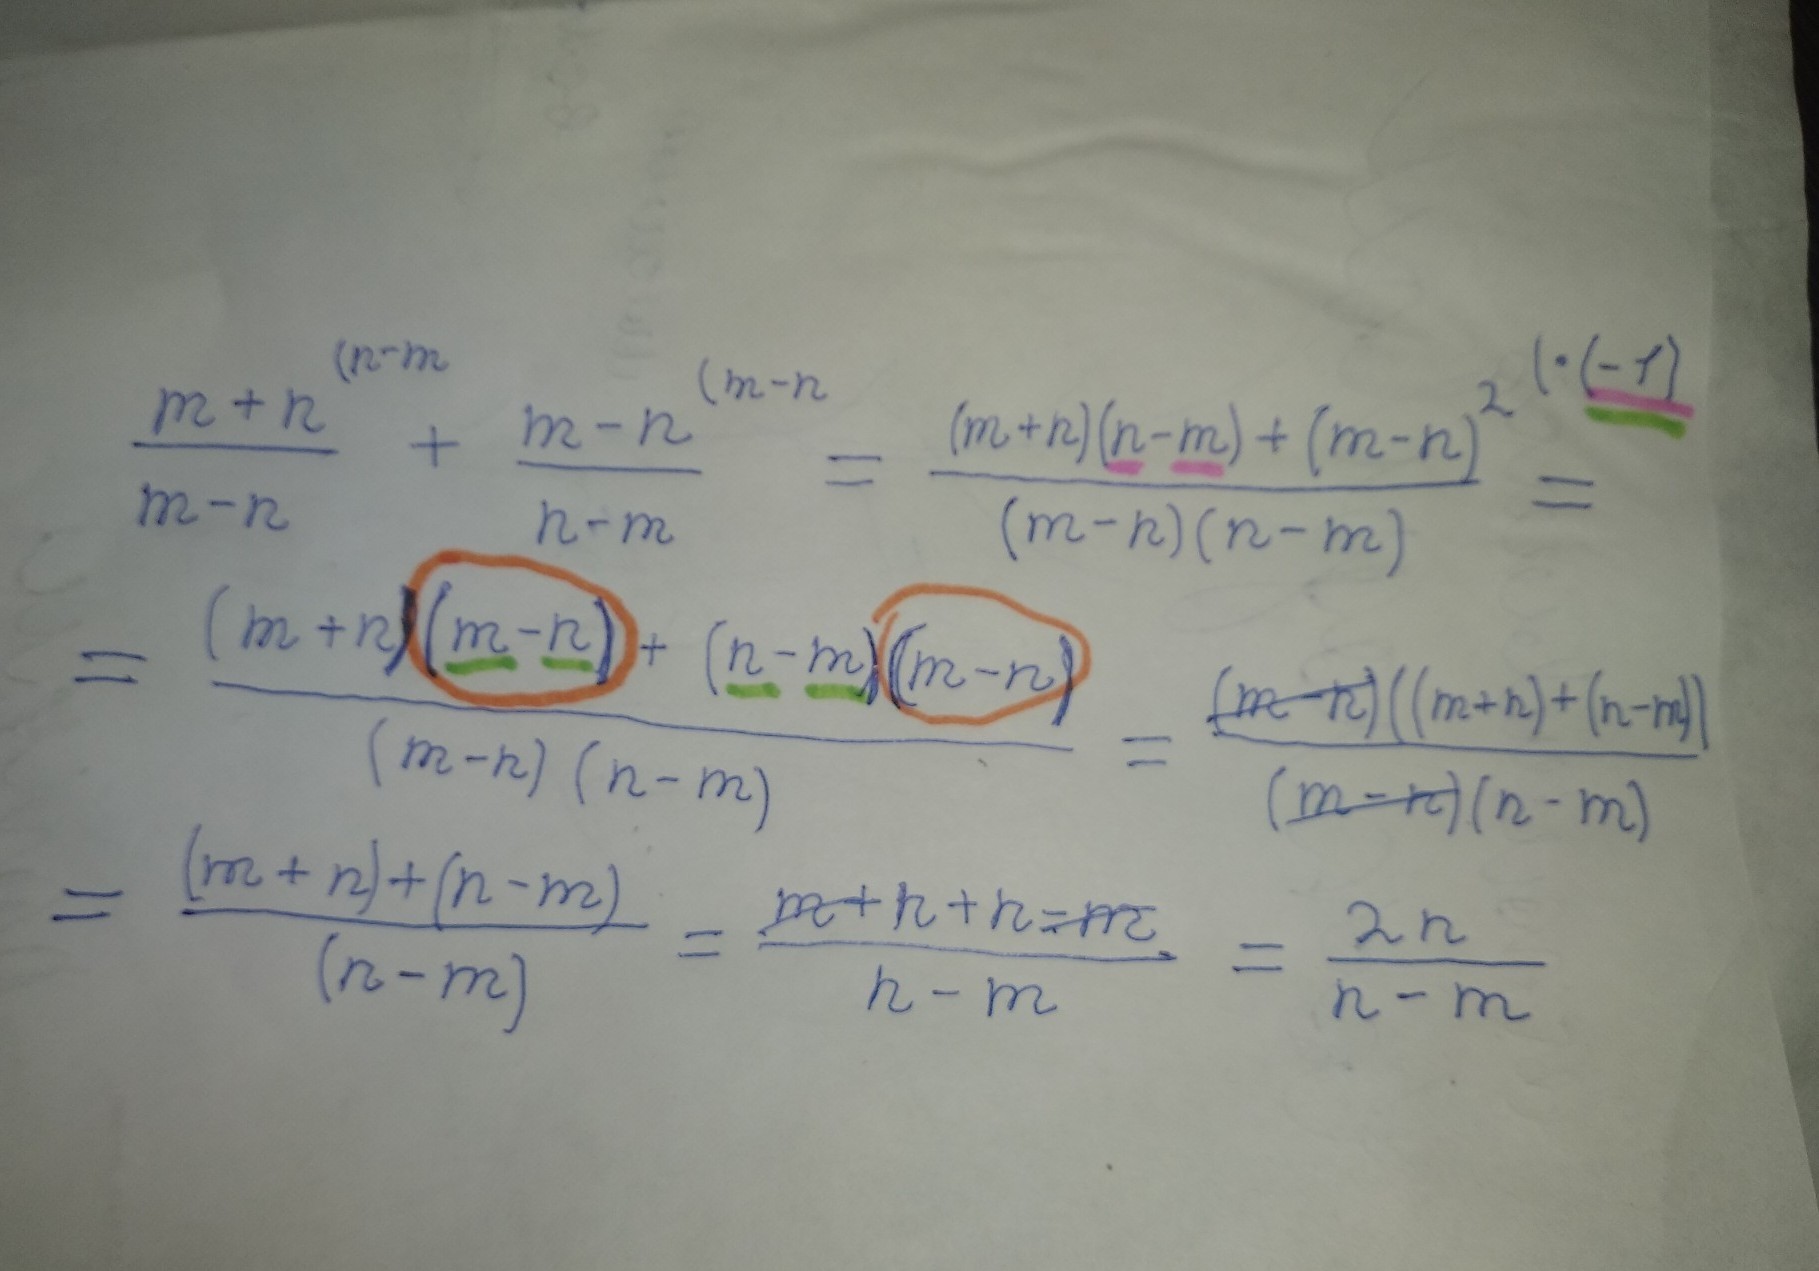 m+n/m-n (n-m + m-n/n-m (m-n = (m+n)(n-m)+(m-n)²/(m-n)(n-m) (·(-1) =
= (m+n)(m-n)+(n-m)(m-n)/(m-n)(n-m) = (m-n)((m+n)+(n-m))/(m-n)(n-m)
= (m+n)+(n-m)/(n-m) = m+n+n-m/n-m = 2n/n-m